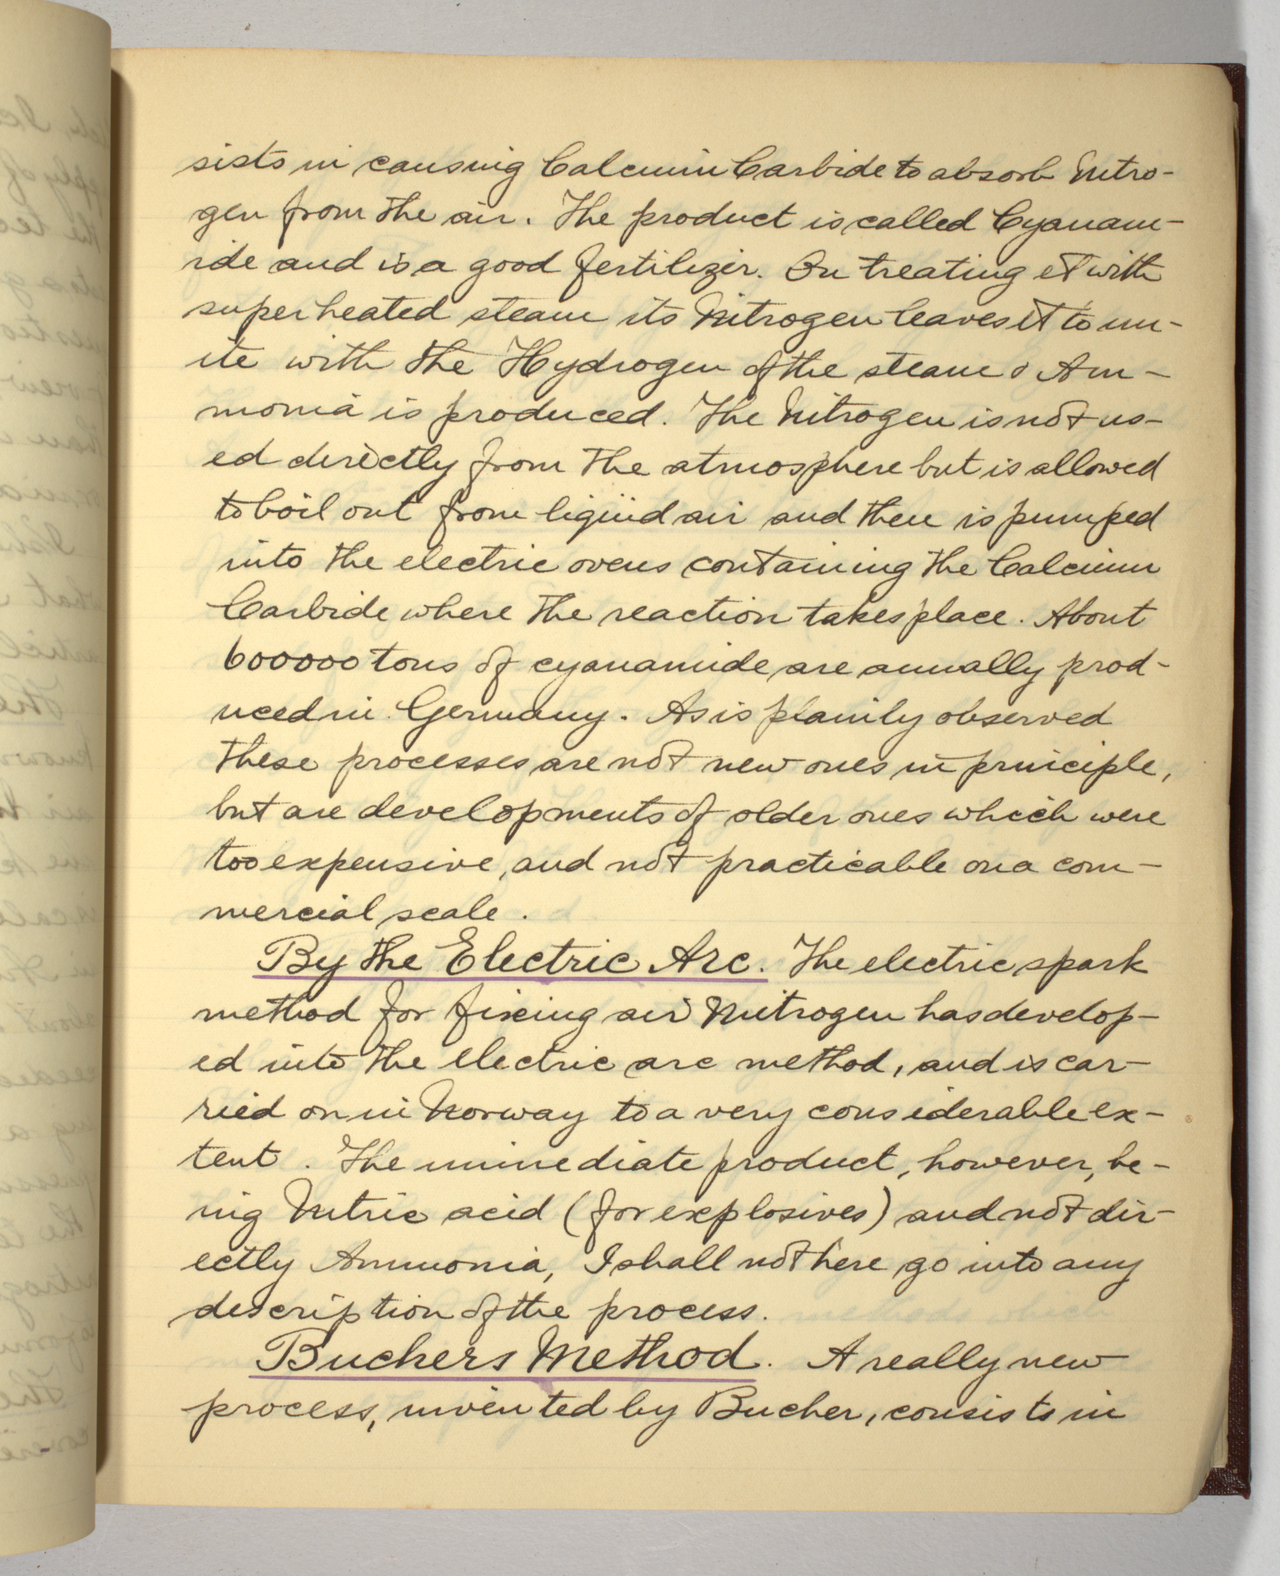 sists in causing Calcium Carbide to absorb Nitro-
gen from the air. The product is called Cyanam-
ide and is a good fertilizer. On treating it with
superheated steam its Nitrogen leaves it to un-
ite with the Hydrogen of the steam & Am-
monia is produced. The Nitrogen is not us-
ed directly from the atmosphere but is allowed
to boil out from liquid air and then is pumped
into the electric ovens containing the Calcium
Carbide where the reaction takes place. About
600000 tons of cyanamide are annually prod-
uced in Germany. As is plainly observed
these processes are not new ones in principle,
but are developments of older ones which were
too expensive, and not practicable on a com-
mercial scale.
By the Electric Arc. The electric spark
method for fixing air Nitrogen has develop-
ed into the electric arc method, and is car-
ried on in Norway to a very considerable ex-
tent. The immediate product, however, be-
ing Nitric acid (for explosives) and not dir-
ectly Ammonia, I shall not here go into any
description of the process.
Buchers Method. A really new
process, invented by Bucher, consists in